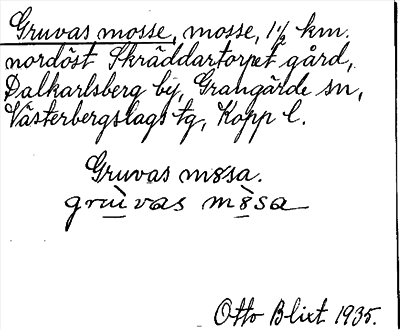 Gruvas mosse, mosse, 1½ km.
nordöst Skräddartorpet gård,
Dalkarlsberg by, Grangärde sn,
Västerbergslags tg, Kopp l.
Gruvas m8sa.
grùvas m8̀sa
Otto Blixt 1935.